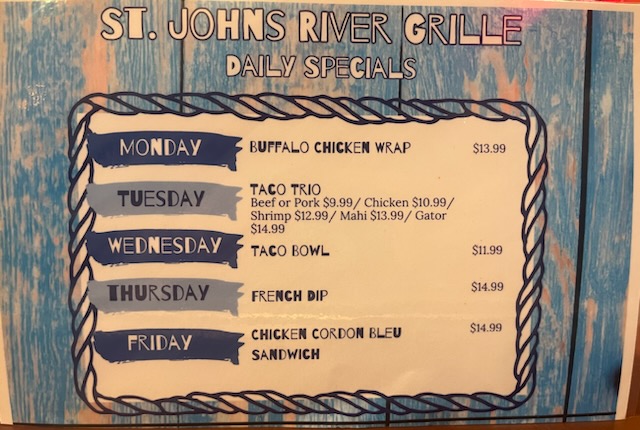 ST. JOHNS RIVER GRILLE
DAILY SPECIALS
MONDAY BUFFALO CHICKEN WRAP $13.99
TUESDAY TACO TRIO
Beef or Pork $9.99/ Chicken $10.99/
Shrimp $12.99/ Mahi $13.99/ Gator
$14.99
WEDNESDAY TACO BOWL $11.99
THURSDAY FRENCH DIP $14.99
FRIDAY CHICKEN CORDON BLEU $14.99
SANDWICH